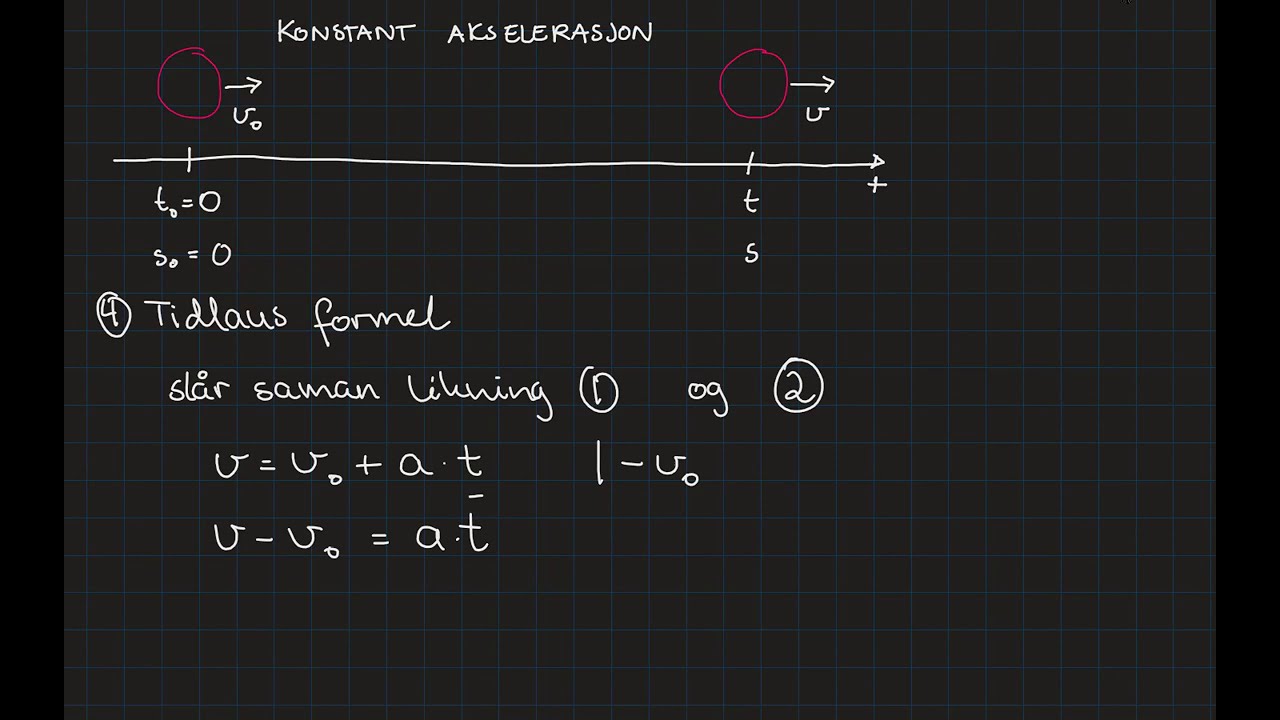 KONSTANT AKSELERASJON
v₀ v
+
t₀=0 t
s₀ = 0 s
④ Tidlaus formel
slår saman likning ① og ②
v = v₀ + a · t | - v₀
v - v₀ = a · t